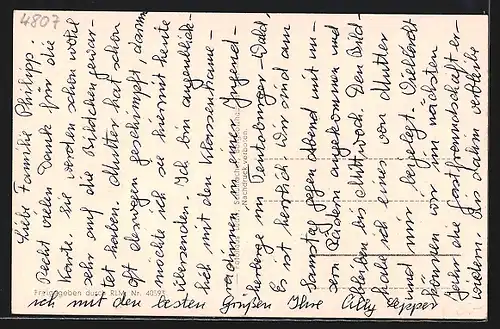 4807
Liebe Familie Philipp!
Recht vielen Dank für die
Karte. Sie werden schon wohl
sehr auf die Bildchen gewar-
tet haben. Mutter hat schon
oft deswegen geschimpft, darum
möchte ich sie hiermit heute
übersenden. Ich bin augenblick-
lich mit den Klassenkame-
radinnen in einer Jugend-
herberge im Teutoburger-Wald,
Es ist herrlich. Wir sind am
Samstag gegen Abend mit un-
sern Rädern angekommen und
bleiben bis Mittwoch. Den Bild-
habe ich eines von Mutter
und mir beigelegt. Vielleicht
können wir im nächsten
Jahr die Gastfreundschaft er-
widern. Bis dahin verbleibe
ich mit den besten Grüßen Ihre Cilly Lepper
Nachdruck verboten.
Freigegeben durch RLM Nr. 40593